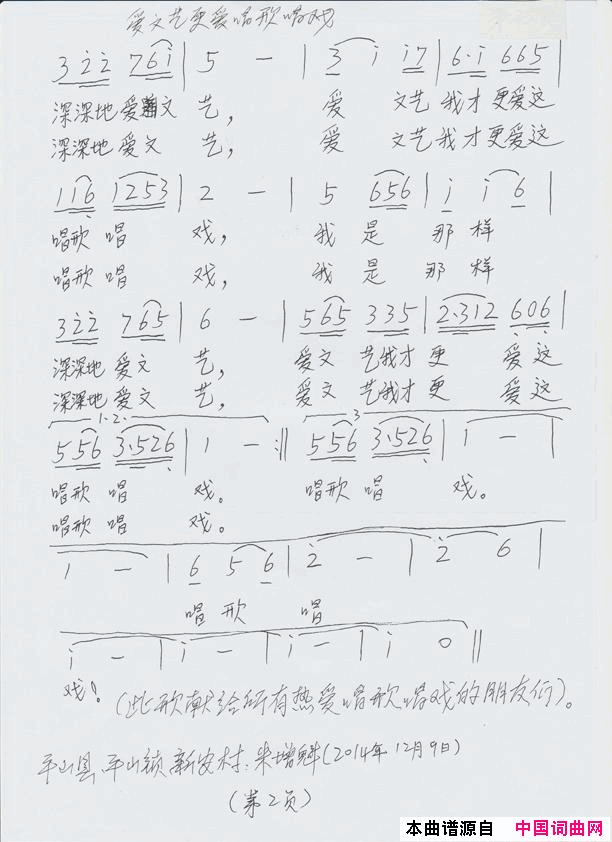 爱文艺更爱唱歌唱戏
3 2̇ 2̇ 7 6 i | 5 - | 3 i i 7 | 6·i 6 6 5 |
深深地爱文 艺, 爱 文艺 我才更爱这
深深地爱文 艺, 爱 文艺 我才更爱这
1 1 6 1 2 5 3 | 2 - | 5 6 5 6 | i i 6 |
唱歌 唱 戏, 我 是 那 样
唱歌 唱 戏, 我 是 那 样
3 2̇ 2̇ 7 6 5 | 6 - | 5 6 5 3 3 5 | 2·3 1 2 6 0 6 |
深深地 爱文 艺, 爱文 艺我才 更 爱 这
深深地 爱文 艺, 爱文 艺我才 更 爱 这
1·2· 3
5 5 6 3·5 2 6 | 1 - :‖ 5 5 6 3·5 2 6 | i - |
唱歌 唱 戏。 唱歌 唱 戏。
唱歌 唱 戏。
i - | 6 5 6 | 2̇ - | 2̇ 6 |
唱 歌 唱
i - | i - | i - | i 0 ‖
戏! (此歌献给所有热爱唱歌唱戏的朋友们)。
平山县、平山镇新安村: 米增魁(2014年12月9日)
(第2页)
本曲谱源自 中国词曲网